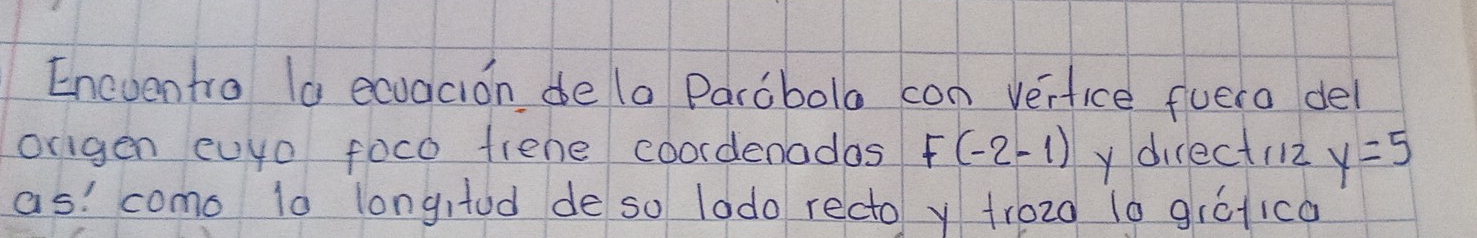 Encuentra la ecuación de la Parábola con vértice fuera del
origen cuyo foco tiene coordenadas F(-2-1) y directriz y=5
así como la longitud de su lado recto y traza la gráfica